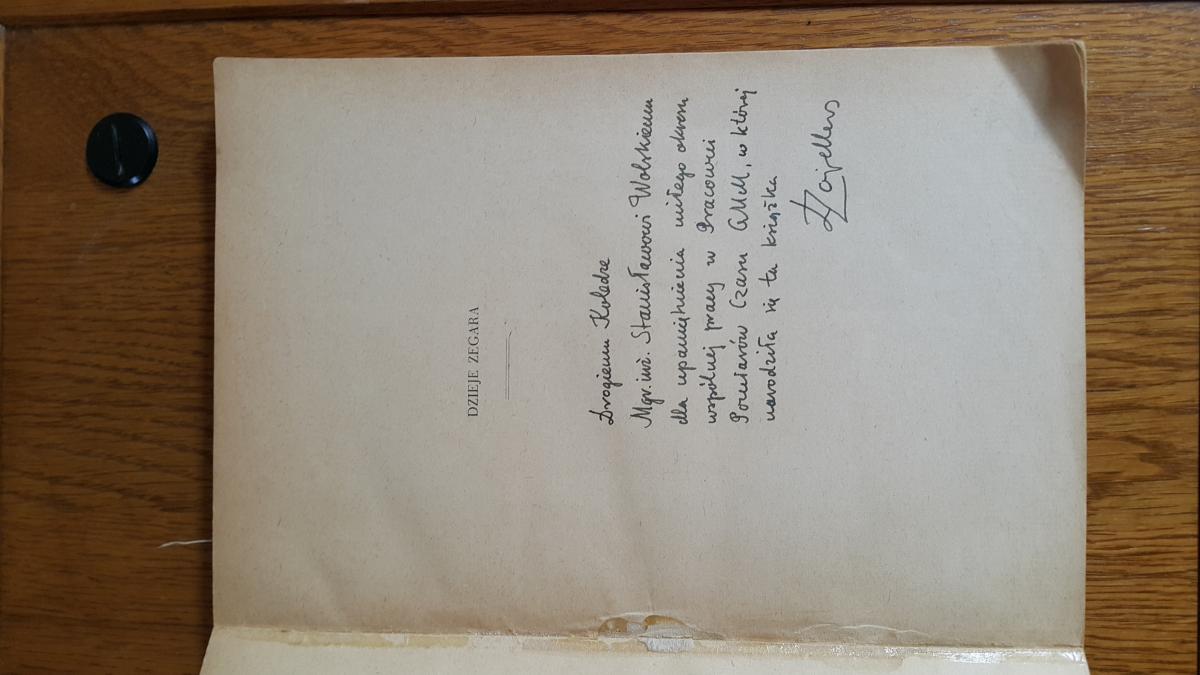 DZIEJE ZEGARA
Drogiemu Koledze
Mgr. inż. Stanisławowi Wolskiemu
dla upamiętnienia miłego okresu
wspólnej pracy w Pracowni
Pomiarów Czasu GUM, w której
narodziła się ta książka
Zajdler